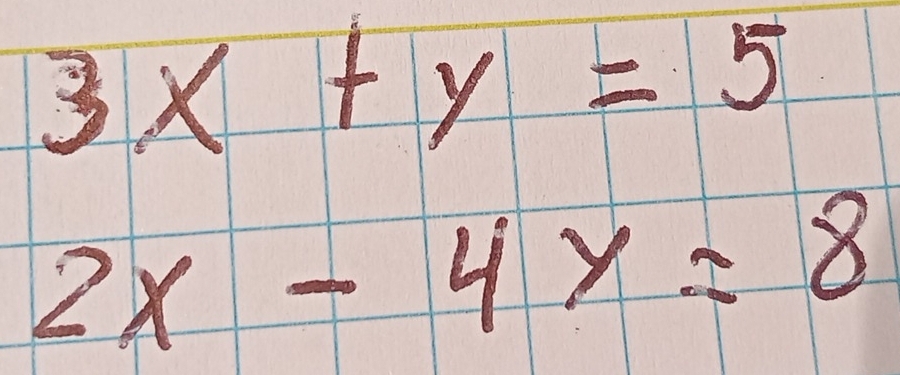 3x + y = 5
2x - 4y = 8